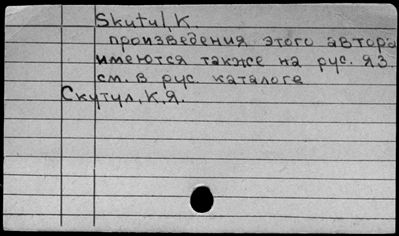 Skutul, K.
произведения этого автора
имеются также на рус. яз.
см. в рус. каталоге
Скутул, К.Я.